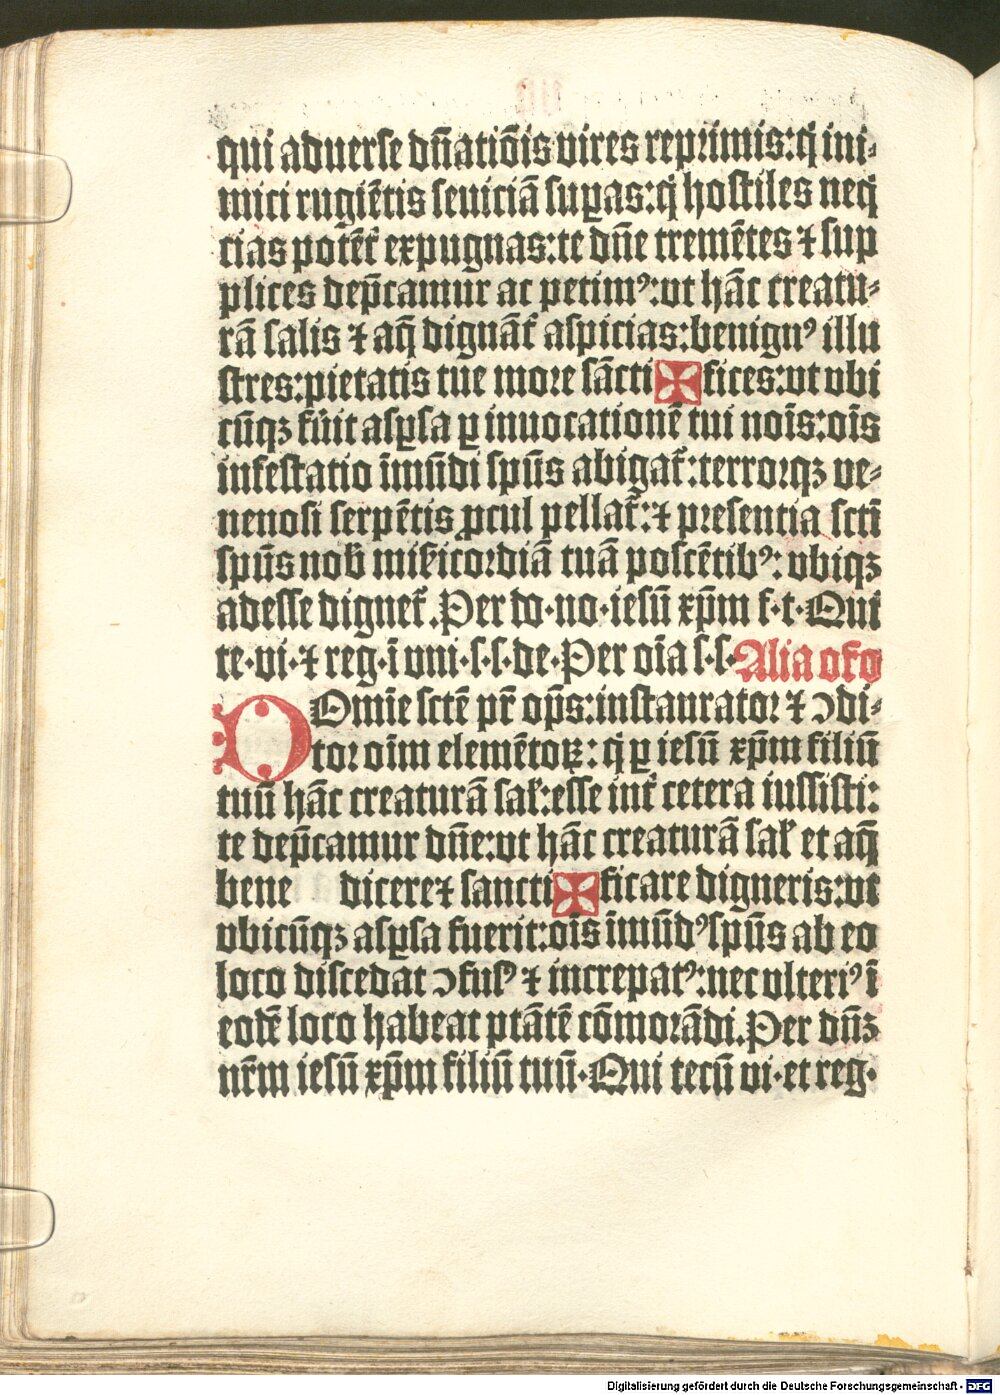 qui aduerse dn̄atiōis uires reprimis:qͥ ini⸗
mici rugiētis seuiciā suꝑas:qͥ hostiles neqͥ
cias potēt᷑ expugnas:te dn̄e tremētes ⁊ sup
plices dep̄camur ac petimꝰ:vt hāc creatu⸗
rā salis ⁊ aq̄ dignāt᷑ aspicias:benignꝰ illu
stres:pietatis tue more sācti✠fices:vt vbi
cūqꝫ fu͛it asꝑsa ꝑ inuocationē tui nois̄:ois̄
infestatio īmūdi spūs abigat᷑:terrorqꝫ ve⸗
nenosi serpētis ꝓcul pellat᷑:⁊ presentia scti̅
spūs nob̄ mis͛icordiā tuā poscētibꝰ: vbiqꝫ
adesse dignet᷑.Per do·no·iesū xp̄m f·t·Qui
te·vi·⁊ reg·ī vni·s·s·de·Per oīa s·s·Alia oro
DOmīe sctē pr̄ op̄s:instaurator ⁊ ↄdi⸗
tor oīm elemētoꝝ:qͥ ꝑ iesū xp̄m filiū
tuū hāc creaturā sal̕:esse int͛ cetera iussisti:
te dep̄camur dn̄e:vt hāc creaturā sal̕ et aq̄
bene dicere⁊ sancti✠ficare digneris:vt
vbicūqꝫ asꝑsa fuerit:ois̄ īmūdꝰspūs ab eo
loco discedat ↄfusꝰ ⁊ increpatꝰ:nec vlteriꝰ ī
eodē loco habeat ptātē cōmorādi.Per dn̄ꝫ
nr̄m iesū xp̄m filiū tuū·Qui tecū vi·et reg·
Digitalisierung gefördert durch die Deutsche Forschungsgemeinschaft - DFG